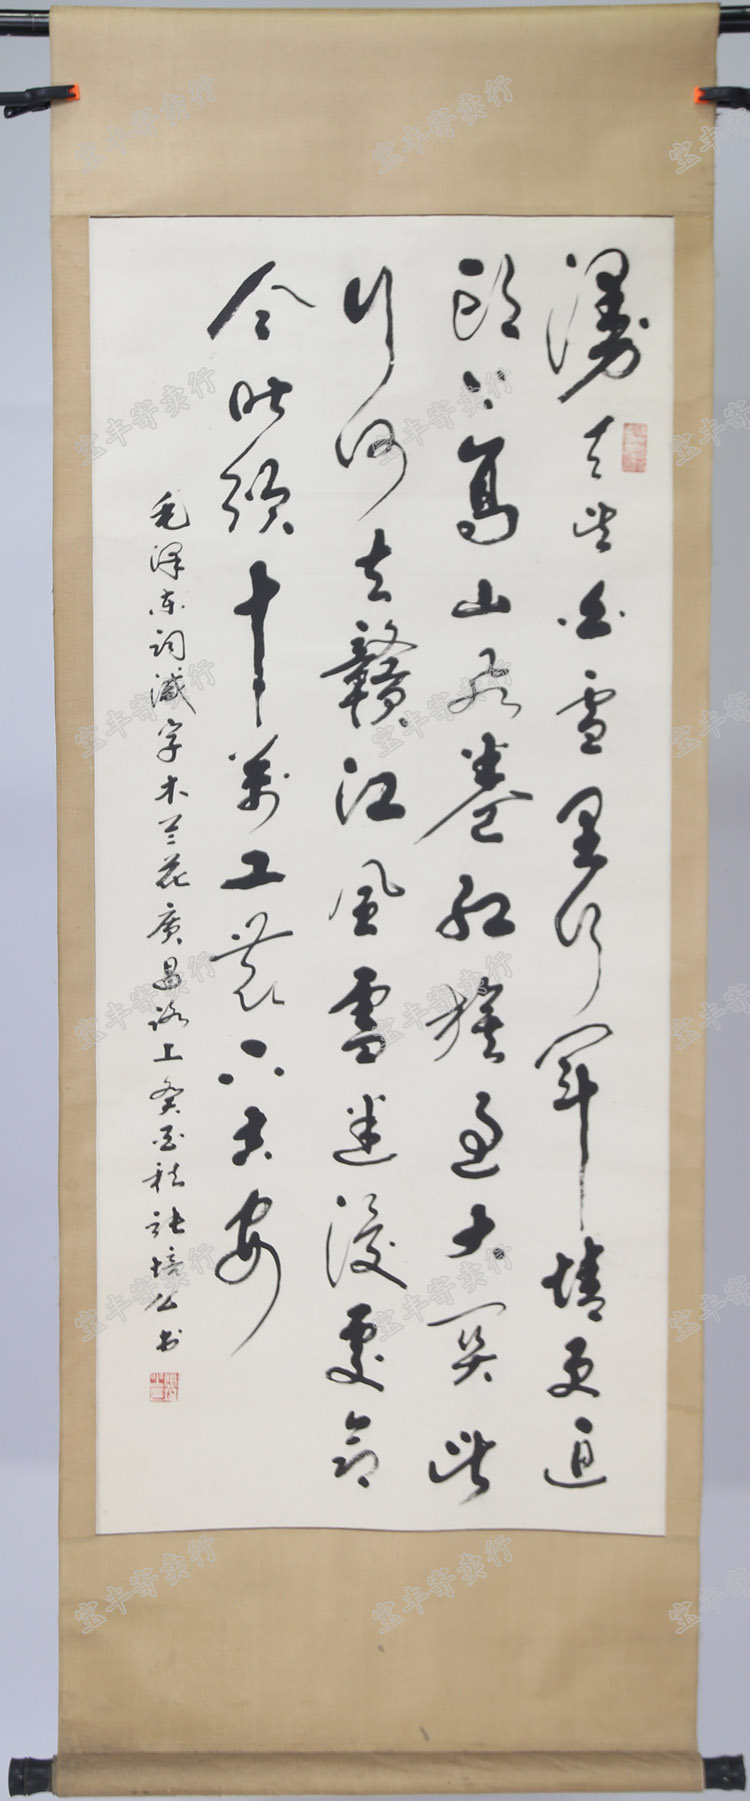 漫天皆白雪里行军情更迫
头上高山风卷红旗过大关此
行何去赣江风雪迷漫处命
令昨颁十萬工农下吉安
毛泽东词减字木兰花廣昌路上癸酉秋张培公书
宝丰寄卖行